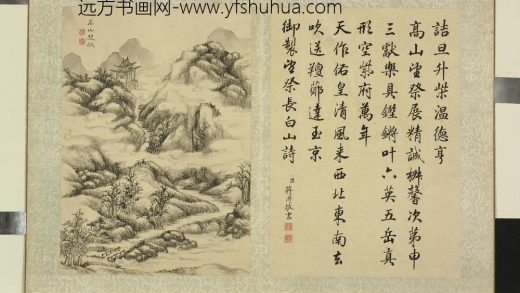 远方书画网-www.yfshuhua.com
名山望秩
詰旦升柴温德亨
高山望祭展精誠椒馨次第申
三獻樂具鏗鏘叶六英五岳真
形空紫府萬年
天作佑皇清風来西北東南去
吹送膻薌達玉京
御製望祭長白山詩
臣蔣溥敬書